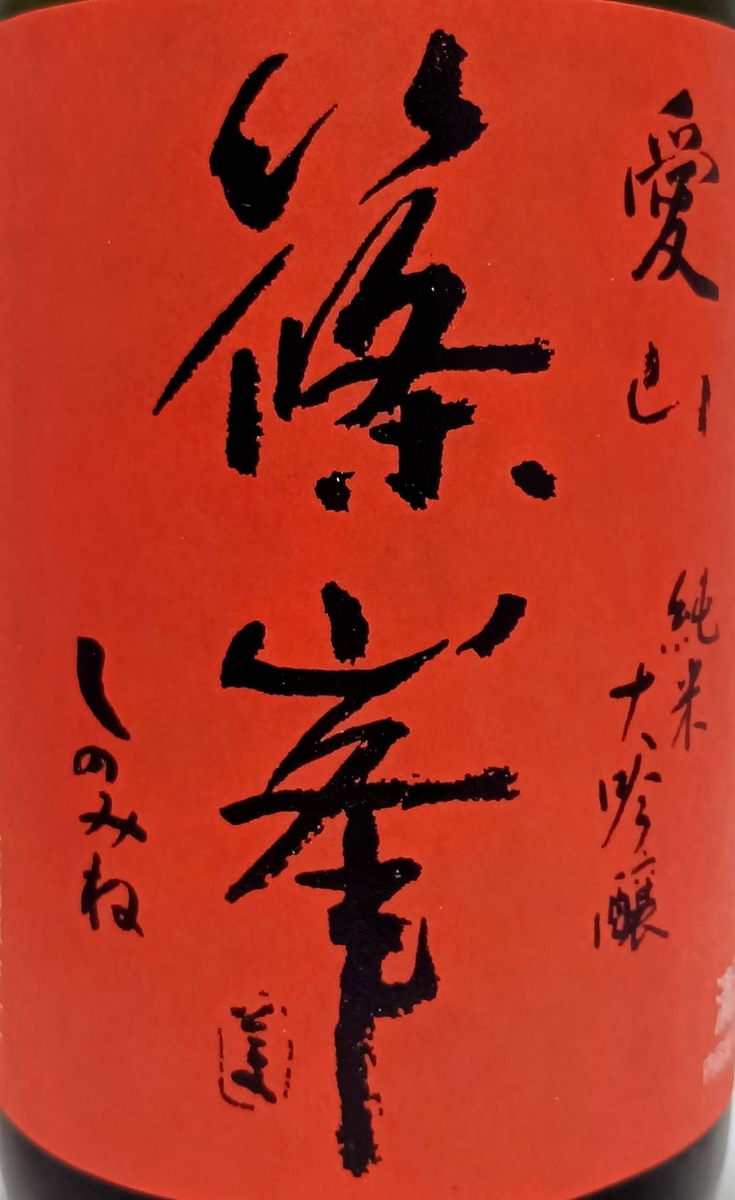 愛山
純米
大吟醸
篠峯
しのみね